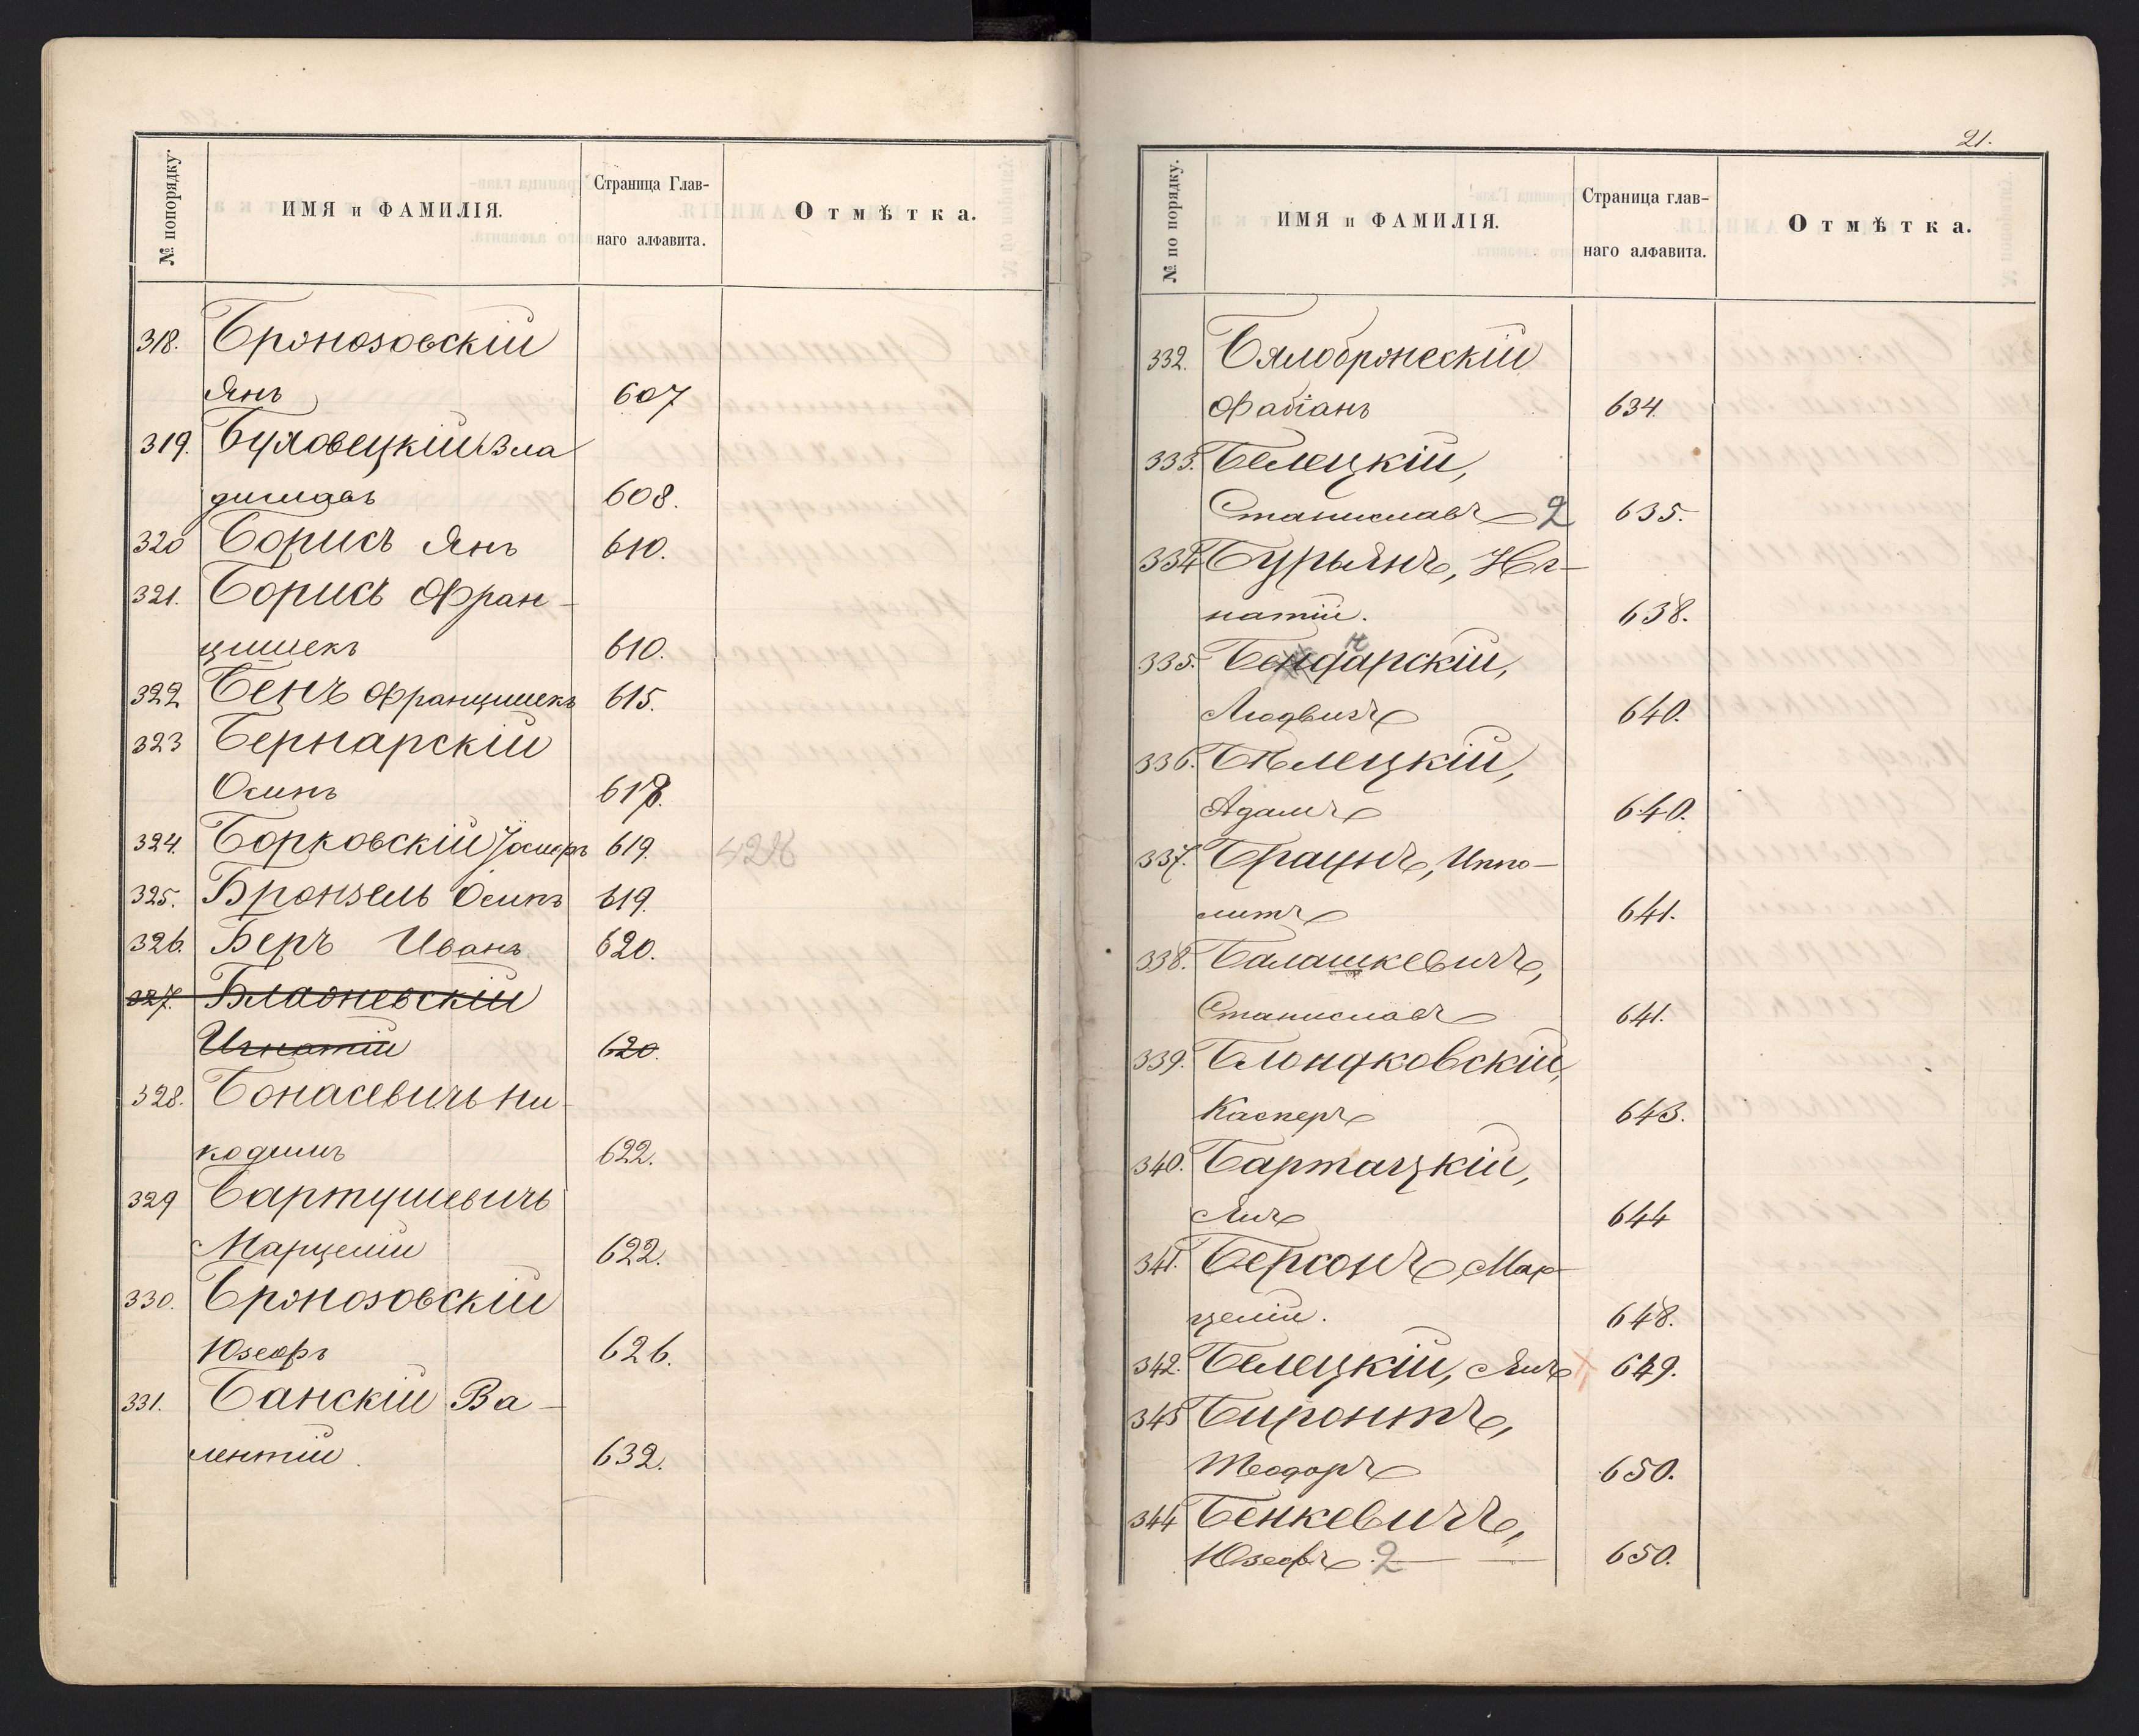 № попорядку.
ИМЯ и ФАМИЛІЯ.
Страница Глав-
наго алфавита.
Отмѣтка.
318. Бржозовскій
Янъ 607
319. Буяловецкій Вла
диславъ 608.
320 Борисъ Янъ 610.
321. Борисъ Фран-
цишекъ 610.
322 Бенъ Францишекъ 615.
323 Бернарскій
Осипъ 618.
324. Борковскій Іосифъ 619.
325. Бронзель Осипъ 619.
326. Беръ Иванъ 620.
327. Блаоневскій
Игнатій 620.
328. Бонасевичъ Ни-
кодимъ 622.
329 Бартушевичъ
Марцелій 622.
330. Бржозовскій
Юзефъ 626.
331. Банскій Ва-
лентій 632.
21.
№ по порядку.
ИМЯ и ФАМИЛІЯ.
Страница глав-
наго алфавита.
Отмѣтка.
332. Бялобржескій
Фабіанъ 634.
333. Белецкій,
Станиславъ 2 635.
334 Бурьянъ, Иг-
натій. 638.
335.
Людвигъ 640.
336. Бѣлецкій,
Адамъ 640.
337. Браунъ, Иппо-
литъ 641.
338. Балашкевичъ,
Станиславъ 641.
339. Блондковскій,
Касперъ 643.
340. Бартацкій,
Янъ 644
341. Берсонъ, Мар-
целій. 648.
342. Белецкій, Янъ 649.
343 Биронтъ,
Теодоръ 650.
344 Бенкевичъ,
Юзефъ 2 650.